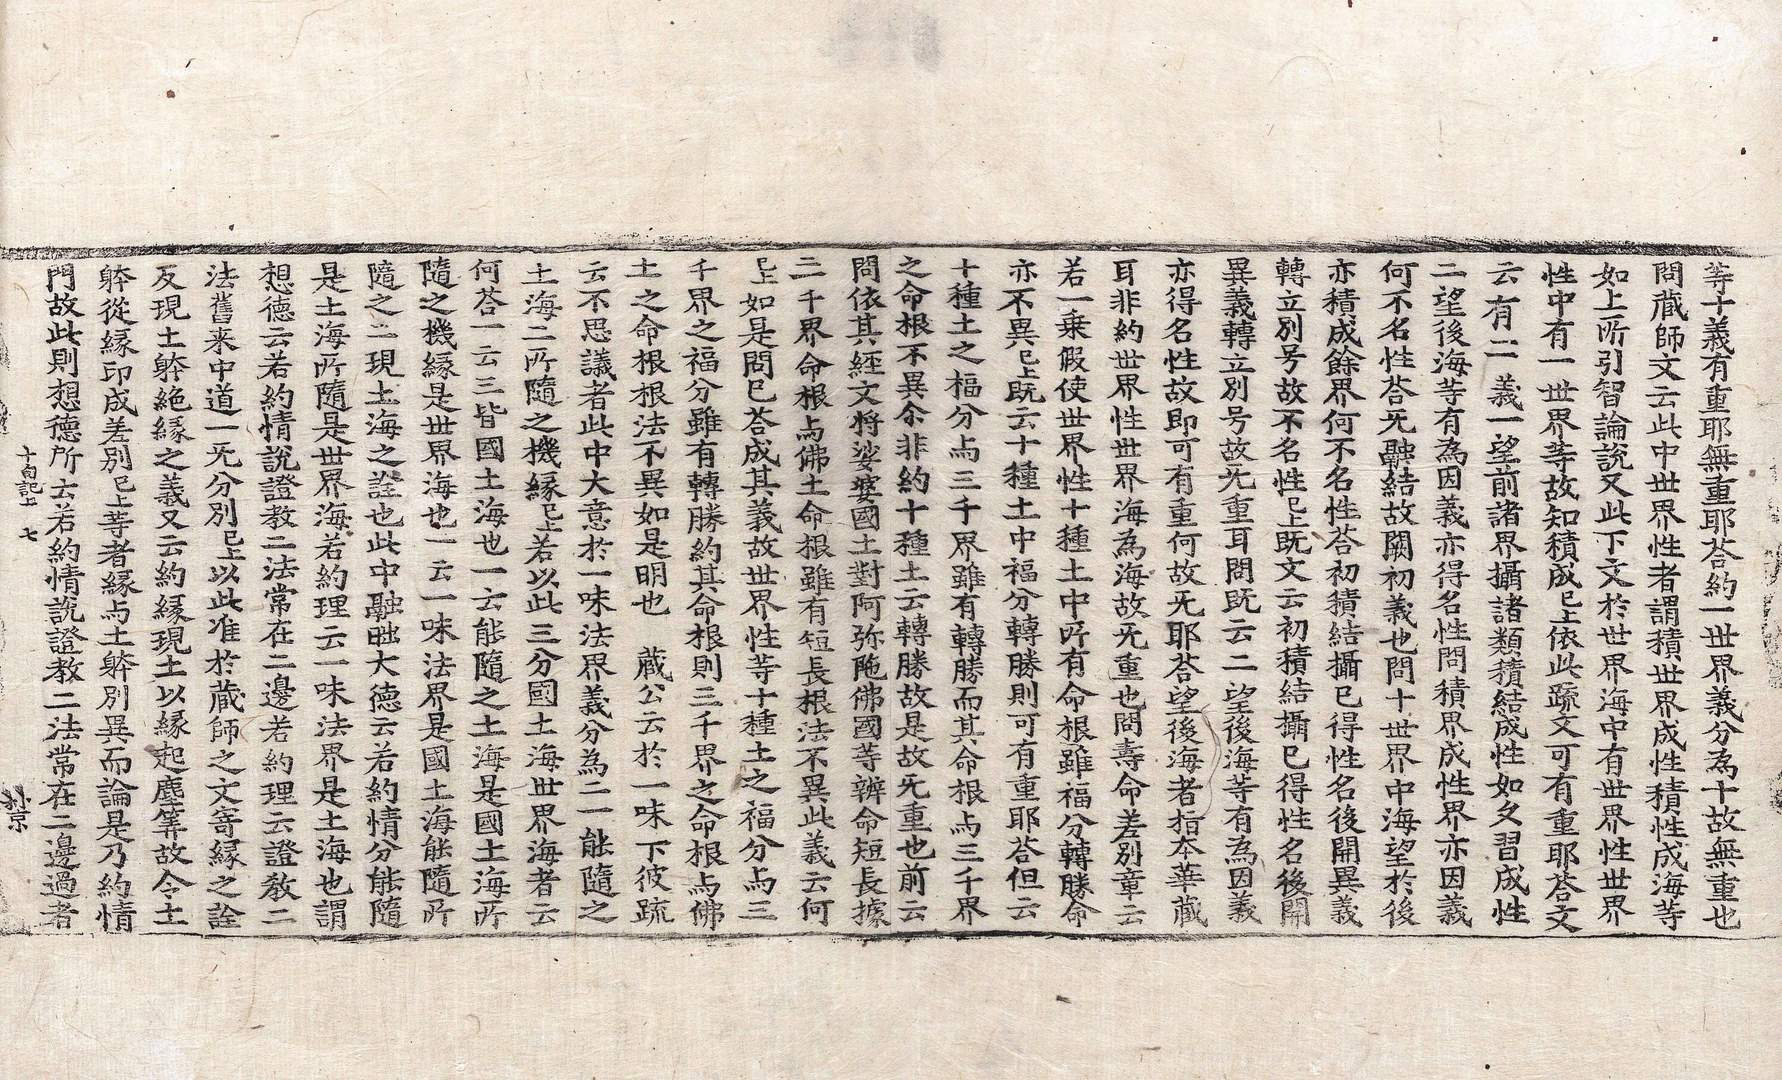 等十義有重耶無重耶荅約一世界義分為十故無重也
問蔵師文云此中世界性者謂積世界成性積性成海等
如上所引智論說又此下文於世界海中有世界性世界
性中有一世界等故知積成已上依此䟽文可有重耶荅文
云有二義一望前諸界攝諸類積結成性如攵習成性
二望後海等有為因義亦得名性問積界成性界亦因義
何不名性荅旡融結故闕初義也問十世界中海望於後
亦積成餘界何不名性荅初積結攝已得性名後開異義
轉立別号故不名性已上既文云初積結攝已得性名後開
異義轉立別号故旡重耳問既云二望後海等有為因義
亦得名性故即可有重何故旡耶荅望後海者指夲華蔵
耳非約世界性世界海為海故旡重也問壽命差別章云
若一乗假使世界性十種土中所有命根雖福分轉勝命
亦不異已上既云十種土中福分轉勝則可有重耶荅但云
十種土之福分与三千界雖有轉勝而其命根与三千界
之命根不異尒非約十種土云轉勝故是故旡重也前云
問依其經文将娑婆國土對阿弥陁佛國等辨命短長據
三千界命根与佛土命根雖有短長根法不異此義云何
已上如是問已荅成其義故世界性等十種土之福分与三
千界之福分雖有轉勝約其命根則三千界之命根与佛
土之命根根法不異如是明也　蔵公云於一味下彼疏
云不思議者此中大意於一味法界義分為二一能隨之
土海二所隨之機縁已上若以此三分國土海世界海者云
何荅一云三皆國土海也一云能隨之土海是國土海所
隨之機縁是世界海也一云一味法界是國土海能隨所
隨之二現土海之詮也此中融眺大德云若約情分能隨
是土海所隨是世界海若約理云一味法界是土海也謂
想德云若約情說證教二法常在二邊若約理云證教二
法舊来中道一旡分別已上以此准於蔵師之文寄縁之詮
反現土躰絶縁之義又云約縁現土以縁起塵筭故令土
躰從縁印成差別已上等者縁与土躰別異而論是乃約情
門故此則想德所云若約情說證教二法常在二邊過者
十句記上　七
孙京